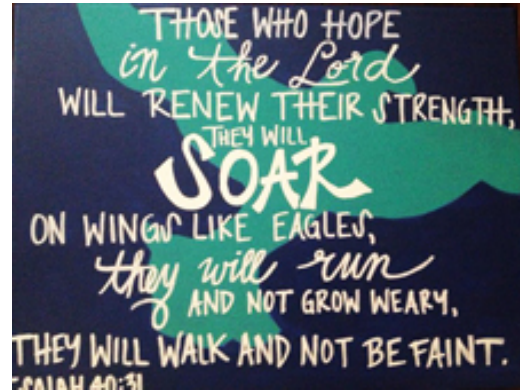 THOSE WHO HOPE
in the Lord
WILL RENEW THEIR STRENGTH,
THEY WILL
SOAR
ON WINGS LIKE EAGLES,
they will run
AND NOT GROW WEARY,
THEY WILL WALK AND NOT BE FAINT.
ISAIAH 40:31